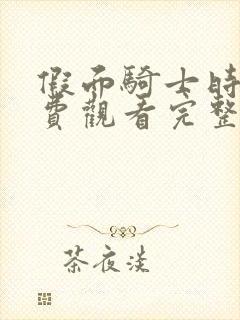 假面騎士時
費觀看完整
茶夜淡